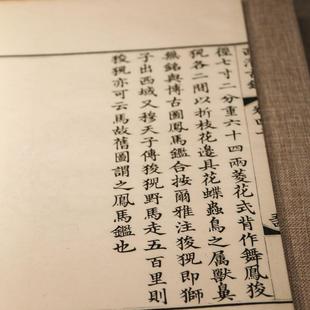 西清古鑑
徑七寸二分重六十四兩菱花式背作舞鳳狻
猊各二間以折枝花邊具花蝶蟲鳥之屬獸鼻
無銘與博古圖鳳馬鑑合按爾雅注狻猊即獅
子出西域又穆天子傳狻猊野馬走五百里則
狻猊亦可云馬故舊圖謂之鳳馬鑑也